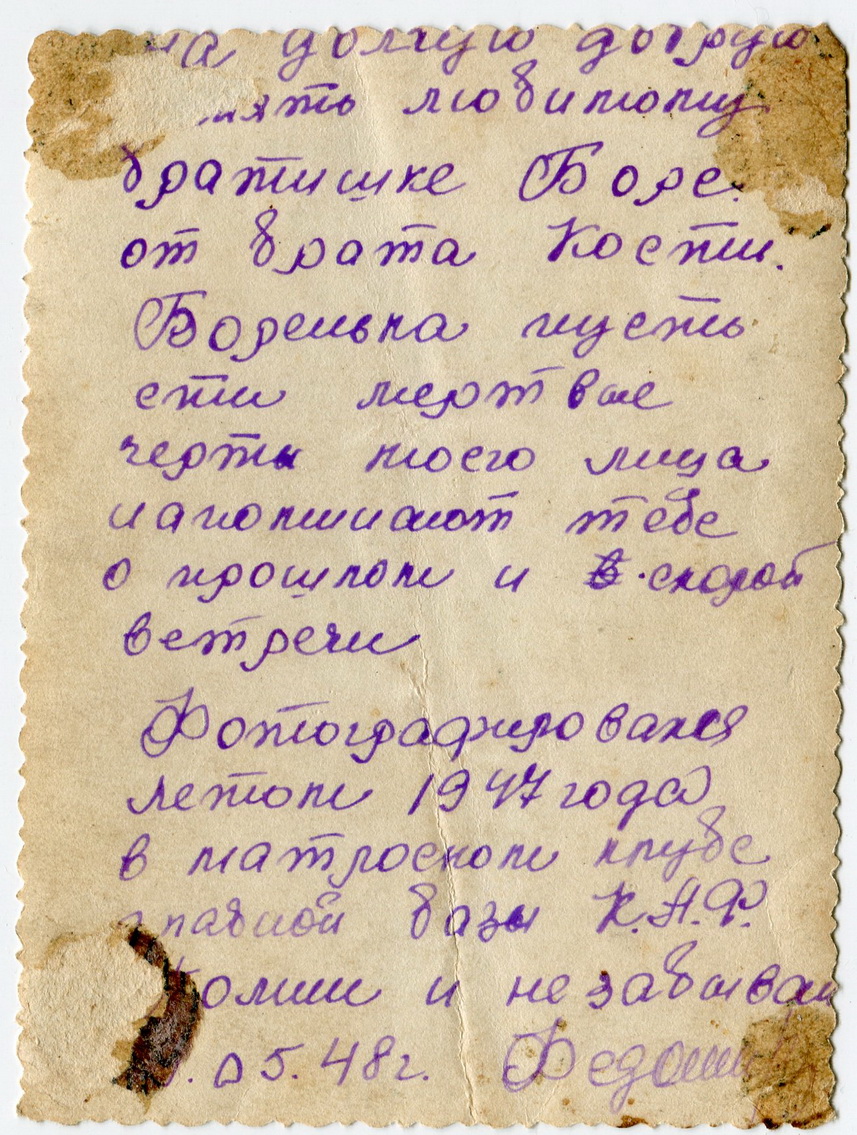 на долгую добрую
мять любимому
братишке Боре.
от брата Кости.
Боренька пусть
эти мертвые
черты моего лица
напоминают тебе
о прошлом и в скорой
встречи
Фотографировался
летом 1947 года
в матроском клубе
главной базы К.А.Ф.
помни и не забывай
05.48г.